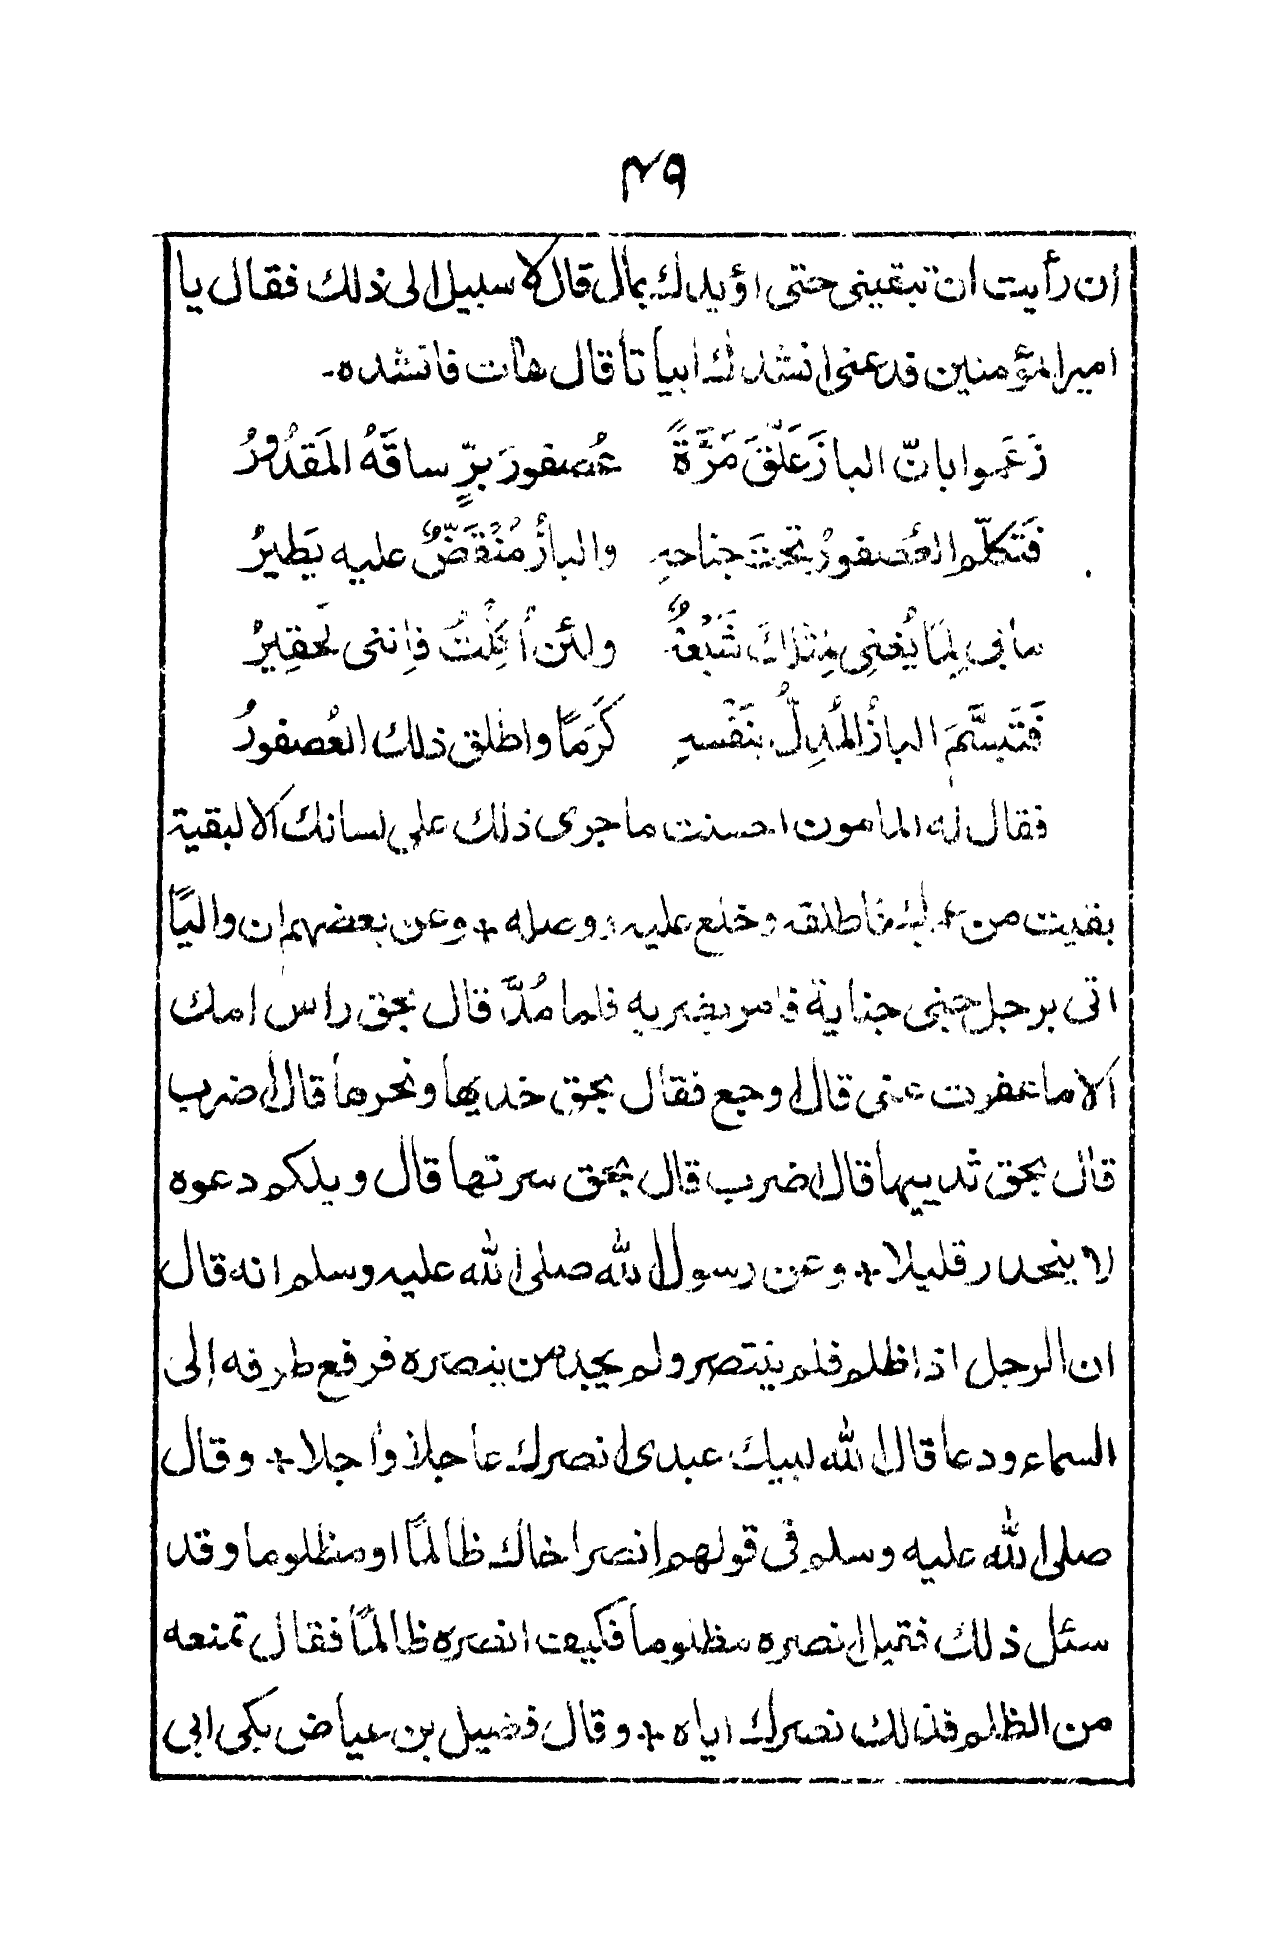 ٤٩
ان رأيت ان تبقيني حتى اؤيدك بمال قال لا سبيل الى ذلك فقال يا
امير المؤمنين فدعنى انشدك ابياتا قال هات فانشده۔
زَعَموا بانّ الباز عَلَّقَ مَرَّةً عُصفورَ برٍّ ساقَهُ المَقدُورُ
فَتَكلّم العُصفورُ تحتَ جناحهِ والبازُ مُنْقَضٌّ عليه يَطيرُ
مابى لِمَا يُغنِى مِثلَكَ شَبْعَةٌ ولئن اُكِلْتُ فاِننى لَحقِيرُ
فَتَبسَّمَ البازُ المُدِلُّ بنَفْسهِ كَرَمًا واطلق ذلك العُصفورُ
فقال له المامون احسنت ما جرى ذلك على لسانك الا لبقية
بقيت من عمرك فاطلقه وخلع عليه ووصله + وعن بعضهم ان واليًا
اتى برجل جنى جناية فامر بضربه فلما مُدَّ قال بحق راس امك
الا ما عفوت عنى قال اوجع فقال بحق خديها ونحرها قال اضرب
قال بحق ثدييها قال اضرب قال بحق سرتها قال ويلكم دعوه
لا ينحدر قليلا + وعن رسول الله صلى الله عليه وسلم انه قال
ان الرجل اذا ظلم فلم ينتصر ولم يجد من ينصره فرفع طرفه إلى
السماء ودعا قال الله لبيك عبدى انصرك عاجلا وآجلا + وقال
صلى الله عليه وسلم فى قولهم انصر اخاك ظالمًا او مظلوما وقد
سئل ذلك فقيل انصره مظلوما فكيف انصره ظالمًا فقال تمنعه
من الظلم فذلك نصرك اياه + وقال فضيل بن عياض بكى ابى